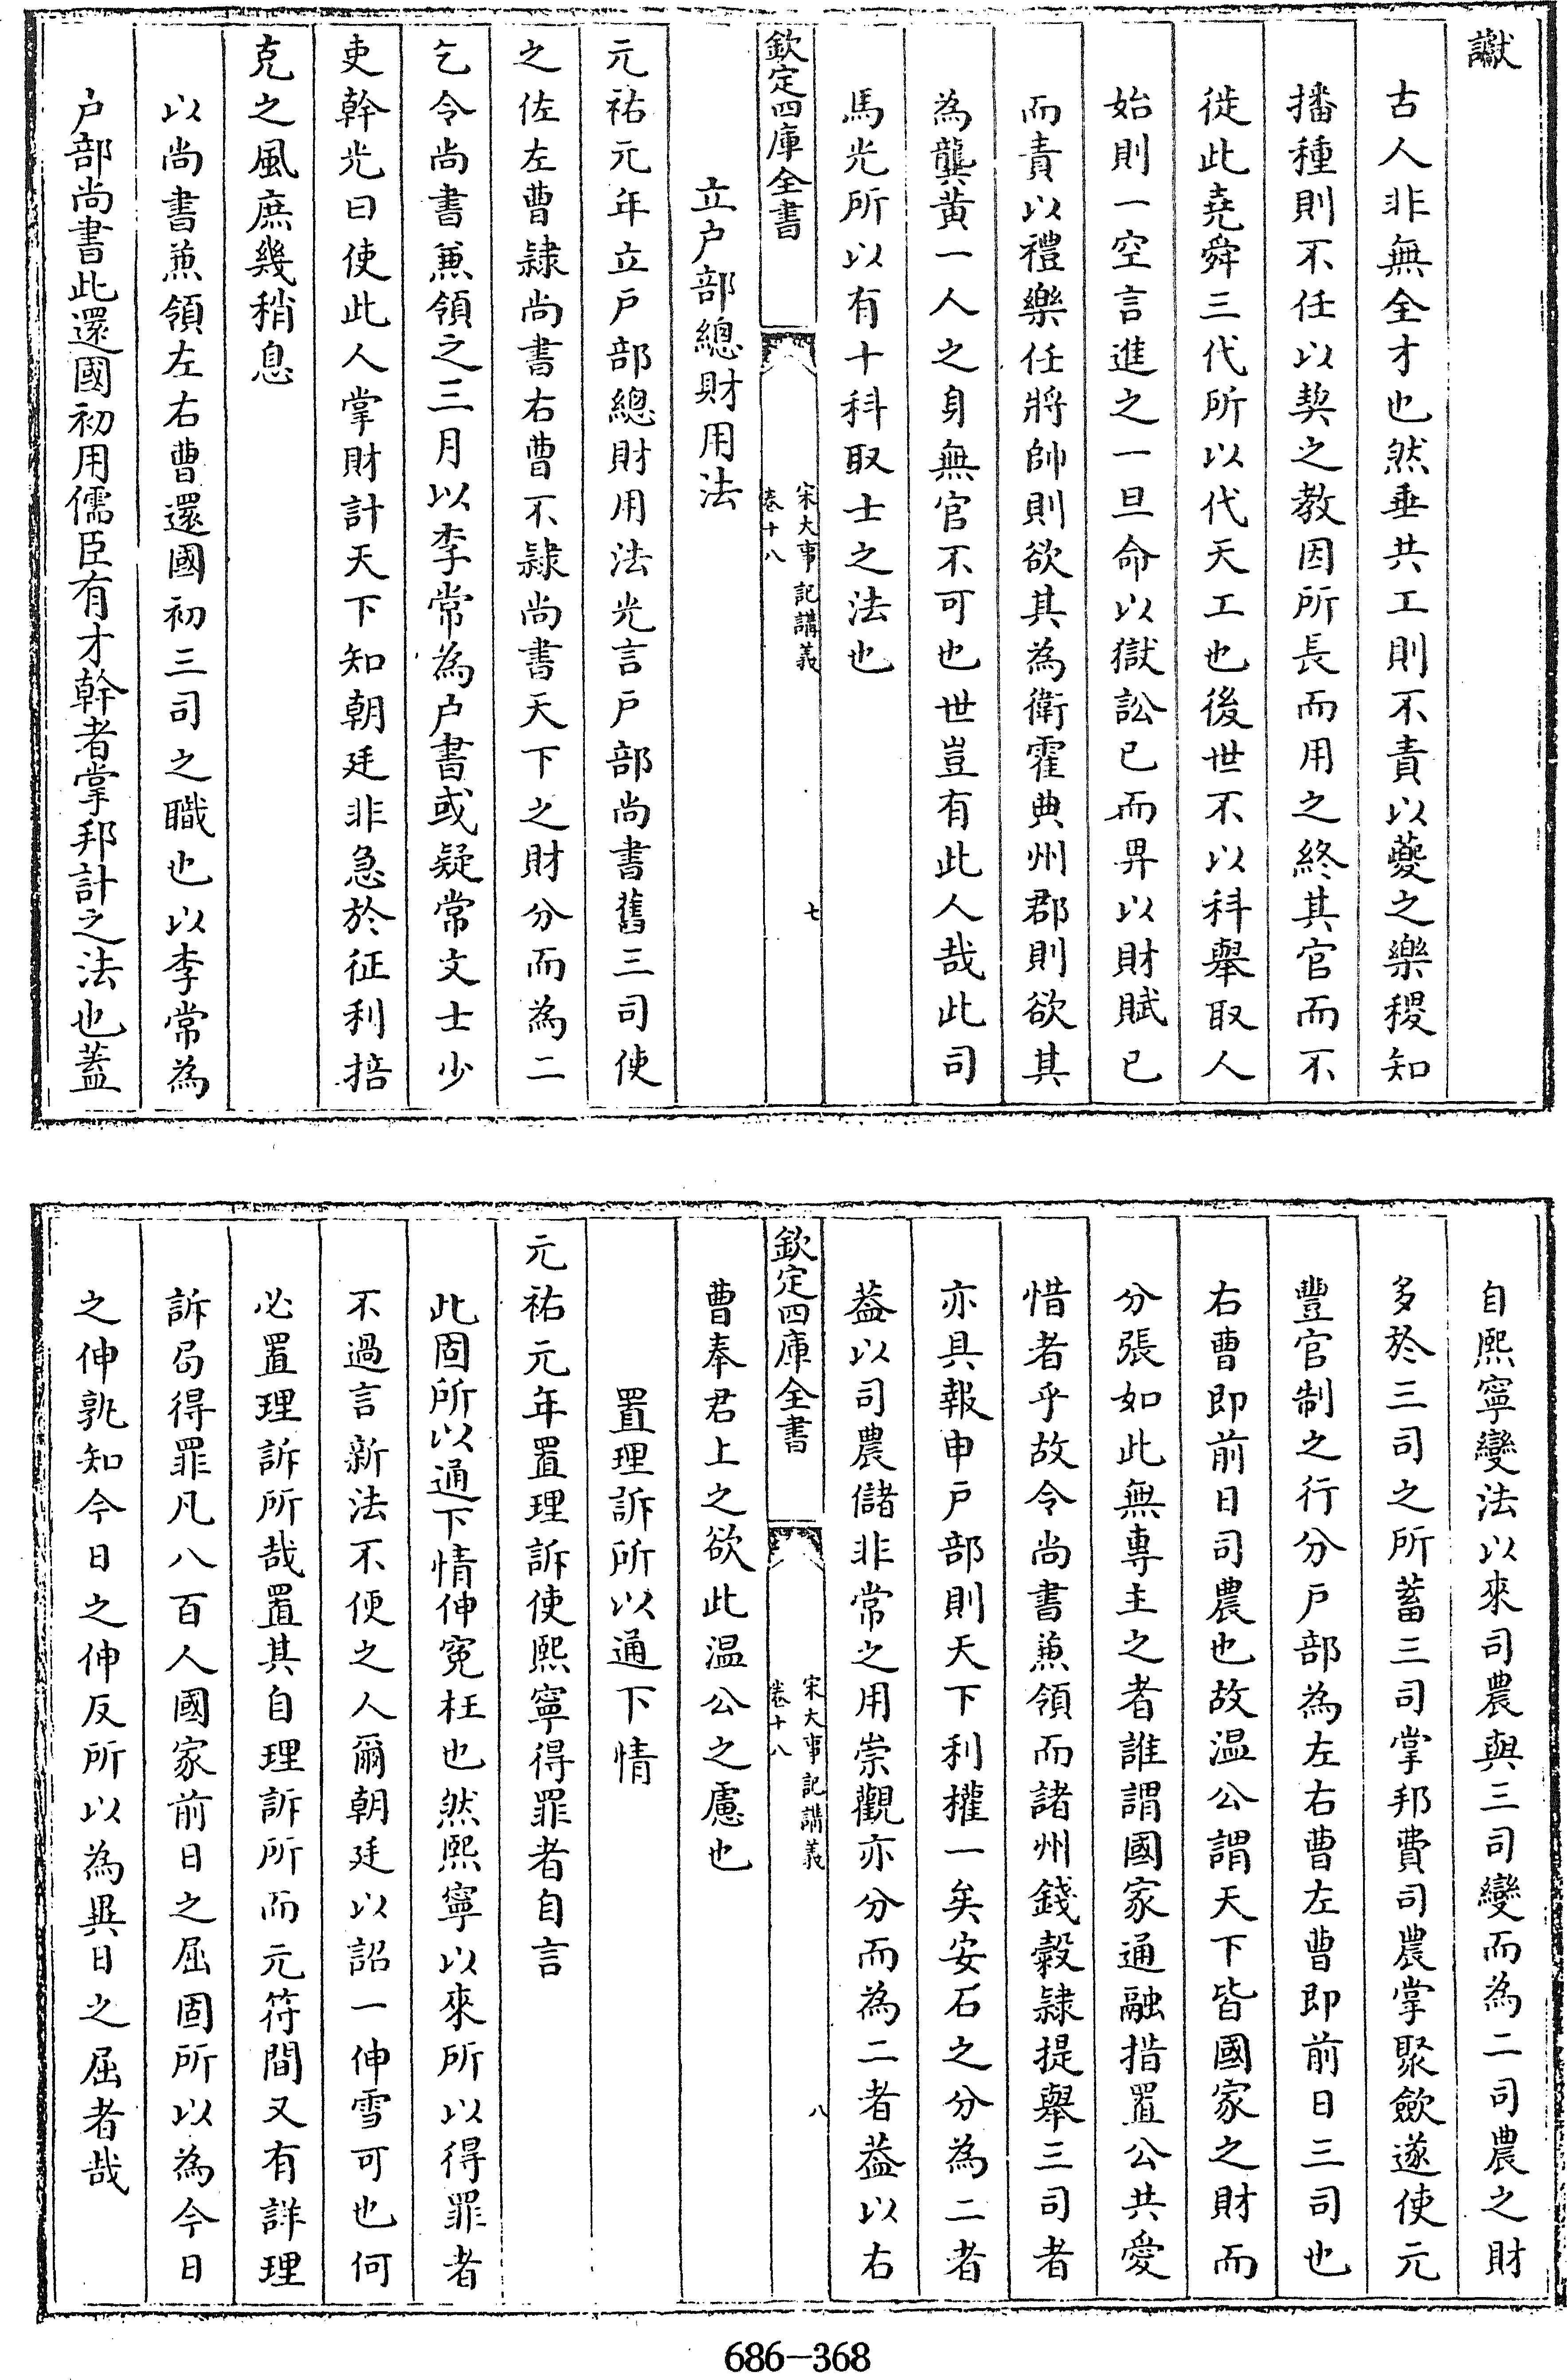 讞
古人非無全才也然垂共工則不責以夔之樂稷知
播種則不任以契之教因所長而用之終其官而不
徙此堯舜三代所以代天工也後世不以科舉取人
始則一空言進之一旦命以獄訟已而畀以財賦已
而責以禮樂任將帥則欲其為衛霍典州郡則欲其
為龔黄一人之身無官不可也世豈有此人哉此司
馬光所以有十科取士之法也
欽定四庫全書
宋大事記講義
卷十八
七
立户部總財用法
元祐元年立户部總財用法光言户部尚書舊三司使
之佐左曹隸尚書右曹不隸尚書天下之財分而為二
乞令尚書兼領之三月以李常為户書或疑常文士少
吏幹光曰使此人掌財計天下知朝廷非急於征利掊
克之風庶幾稍息
以尚書兼領左右曹還國初三司之職也以李常為
户部尚書此還國初用儒臣有才幹者掌邦計之法也蓋
自熙寧變法以來司農與三司變而為二司農之財
多於三司之所蓄三司掌邦費司農掌聚歛遂使元
豐官制之行分户部為左右曹左曹即前日三司也
右曹即前日司農也故温公謂天下皆國家之財而
分張如此無專主之者誰謂國家通融措置公共愛
惜者乎故令尚書兼領而諸州錢穀隸提舉三司者
亦具報申户部則天下利權一矣安石之分為二者
葢以司農儲非常之用崇觀亦分而為二者葢以右
欽定四庫全書
宋大事記講義
卷十八
八
曹奉君上之欲此温公之慮也
置理訴所以通下情
元祐元年置理訴使熙寧得罪者自言
此固所以通下情伸寃枉也然熙寧以來所以得罪者
不過言新法不便之人爾朝廷以詔一伸雪可也何
必置理訴所哉置其自理訴所而元符間又有詳理
訴局得罪凡八百人國家前日之屈固所以為今日
之伸孰知今日之伸反所以為異日之屈者哉
686-368